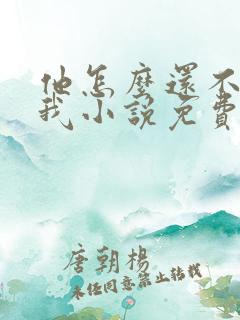 他怎麼還不
我小說免費
唐朝楊
未經同意禁止轉載